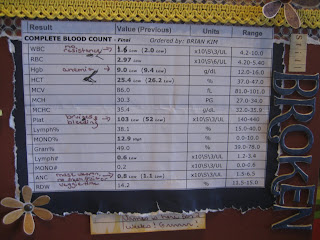 Result Value (Previous) Units Reference
COMPLETE BLOOD COUNT - Final Ordered by: BRIAN KIM
WBC no resistance 1.6 Low (2.0 Low) x10\S\3/UL 4.2-10.0
RBC 2.97 Low x10\S\6/UL 4.20-5.40
Hgb anemia 9.0 Low (9.4 Low) g/dL 12.0-16.0
HCT 25.4 Low (26.2 Low) % 37.0-47.0
MCV 86.0 fL 81.0-101.0
MCH 30.3 PG 27.0-34.0
MCHC 35.4 g/dL
Plat bruising bleeding 103 (52 Low) x10\S\3/UL 140-440
Lymph% 38.1 % 15.0-40.0
MONO% 12.9 High % 0.0-11.0
Gran% 49.0 % 39.0-78.0
Lymph# 0.6 Low x10\S\3/UL 1.2-3.4
MONO# 0.2 x10\S\3/UL 0.0-0.8
ANC 0.8 Low (1.1 Low) x10\S\3/UL 1.5-6.5
RDW 14.2 % 11.5-15.0
BROKEN